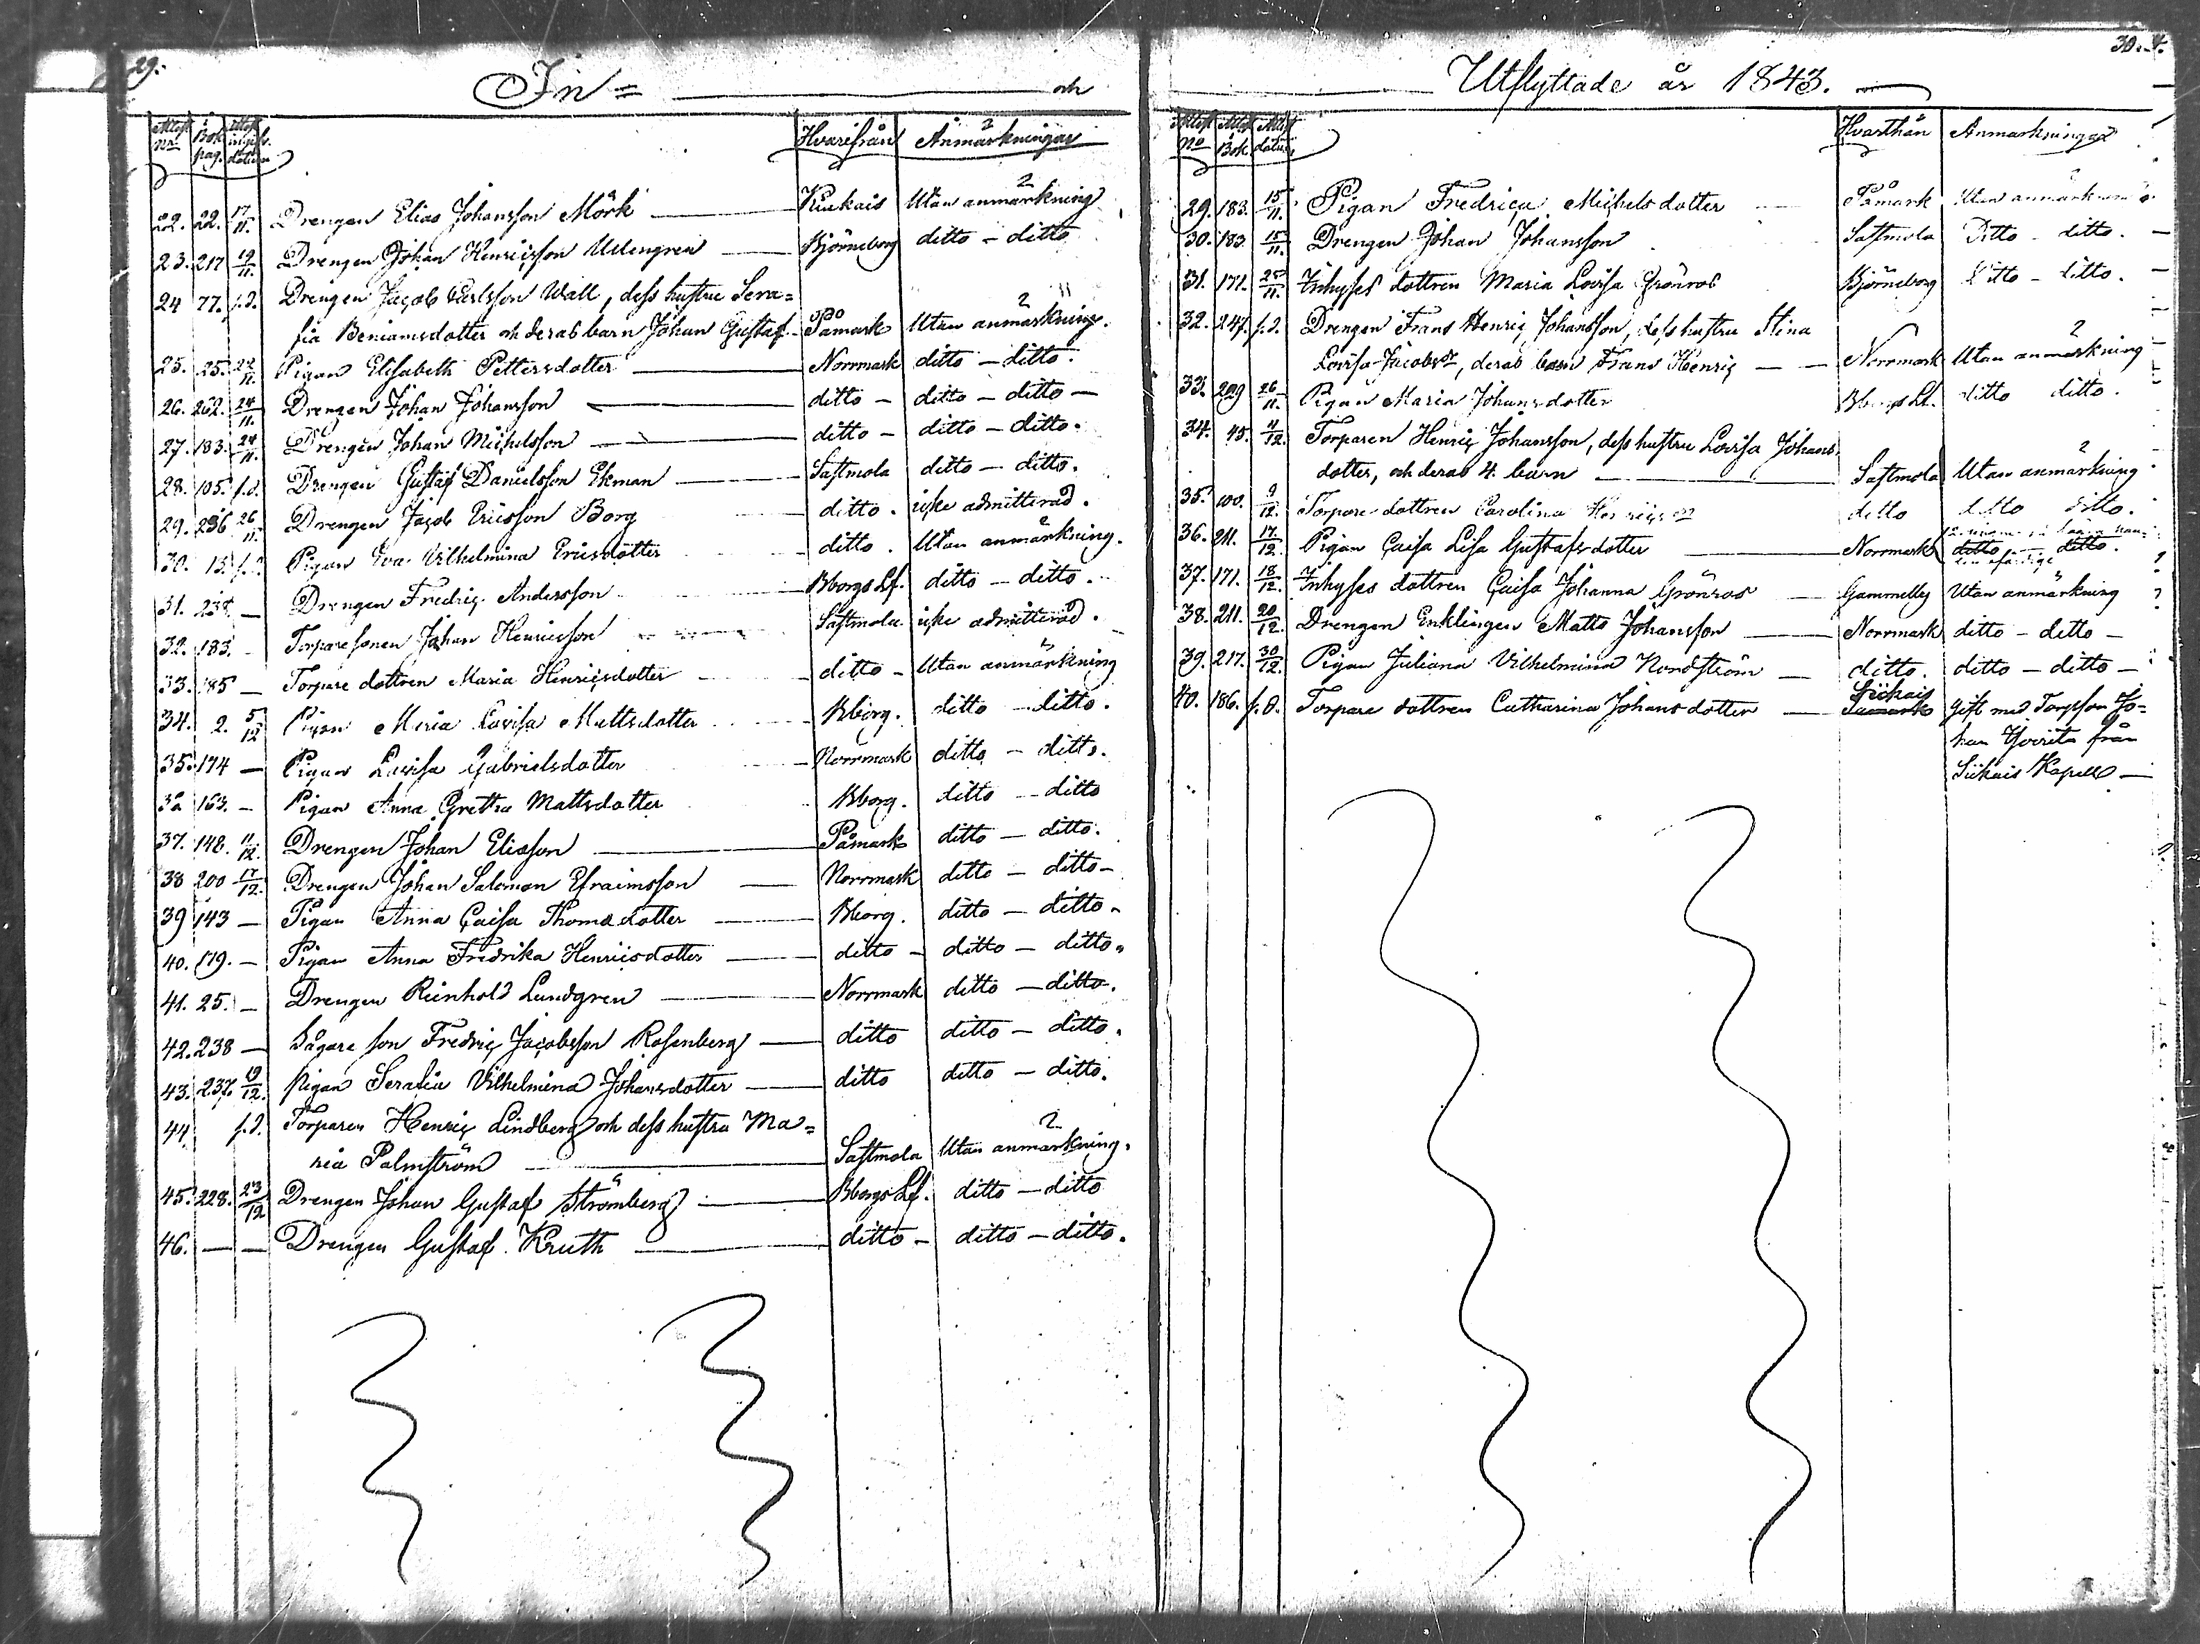 29.
In = och
Attest nr. Bok pag. Attest ingifv. datum Hvarifrån Anmärkningar
22. 22. 17/11. Drengen Elias Johansson Mörk Kiukais Utan anmärkning
23. 217 19/11. Drengen Johan Henricsson Ullengren Björneborg ditto - ditto
24 77. s.d. Drengen Jacob Carlsson Wall, dess hustru Sera=
fia Beniamsdotter och deras barn Johan Gustaf Påmark Utan anmärkning.
25. 25. 22/11. Pigan Elisabeth Pettersdotter Norrmark ditto - ditto.
26. 262. 24/11. Drengen Johan Johansson ditto - ditto - ditto -
27. 183. 24/11. Drengen Johan Michelsson ditto - ditto - ditto.
28. 105. s.d. Drengen Gustaf Danielsson Ekman Sastmola ditto - ditto.
29. 236 26/11. Drengen Jacob Ericsson Borg ditto. icke admitterad.
30. 13. s.d. Pigan Eva Vilhelmina Ericsdotter ditto. Utan anmärkning.
31. 238. - Drengen Fredric Andersson Bborgs Lf. ditto - ditto.
32. 183. - Torparesonen Johan Henricsson Sastmola icke admitterad.
33. 185 - Torpare dottren Maria Henricsdotter ditto - Utan anmärkning
34. 2. 5/12 Pigan Maria Lovisa Mattsdotter Bborg. ditto - ditto.
35. 174 - Pigan Lovisa Gabrielsdotter Norrmark ditto - ditto.
36 163. - Pigan Anna Gretha Mattsdotter Bborg. ditto - ditto
37. 148. 11/12. Drengen Johan Eliasson Påmark ditto - ditto.
38 200 17/12. Drengen Johan Salomon Efraimsson Norrmark ditto - ditto -
39 143 - Pigan Anna Caisa Thomasdotter Bborg. ditto - ditto -
40. 179. - Pigan Anna Fredrika Henricsdotter ditto - ditto - ditto.
41. 25. - Drengen Reinhold Lundgren Norrmark ditto - ditto.
42. 238 - Sågare son Fredric Jacobsson Rosenberg ditto ditto - ditto.
43. 237. 19/12. pigan Serafia Vilhelmina Johansdotter ditto ditto - ditto.
44 s.d. Torparen Henric Lindberg och dess hustru Ma=
ria Palmström Sastmola Utan anmärkning.
45. 228. 23/12 Drengen Johan Gustaf Strömberg Bborgs Lf. ditto - ditto
46. - - Drengen Gustaf Kruth ditto - ditto - ditto.
30.
Utflyttade år 1843.
Attest No Attest Bok Attest datum Hvarthän Anmärkningar
29. 183. 15/11. Pigan Fredrica Michelsdotter Påmark Utan anmärkning.
30. 183 15/11. Drengen Johan Johansson Sastmola Ditto - ditto.
31. 171. 25/11. Inhyses dottren Maria Lovisa Grönros Björneborg Ditto - ditto.
32. 247. s.d. Drengen Frans Henric Johansson, dess hustru Stina
Lovisa Jacobsdr, deras barn Frans Henric Norrmark Utan anmärkning
33. 229 26/11. Pigan Maria Johansdotter Bborgs Lf. ditto ditto.
34. 45. 4/12 Torparen Henric Johansson, dess hustru Lovisa Johans
dotter, och deras 4 barn Sastmola Utan anmärkning
35. 100. 9/12. Torpare dottren Carolina ditto ditto ditto.
36. 211. 17/12. Pigan Caisa Lisa Gustafsdotter Norrmark ditto - ditto.
37. 171. 18/12. Inhyses dottren Caisa Johanna Grönros Gammelby Utan anmärkning
38. 211. 20/12. Drengen Enklingen Matts Johansson Norrmark ditto - ditto -
39. 217. 30/12. Pigan Juliana Vilhelmina Nordström ditto. ditto - ditto -
40. 186. s.d. Torpare dottren Catharina Johansdotter Siikais Gift med Torpson Jo=
han från
Siikais Kapell -